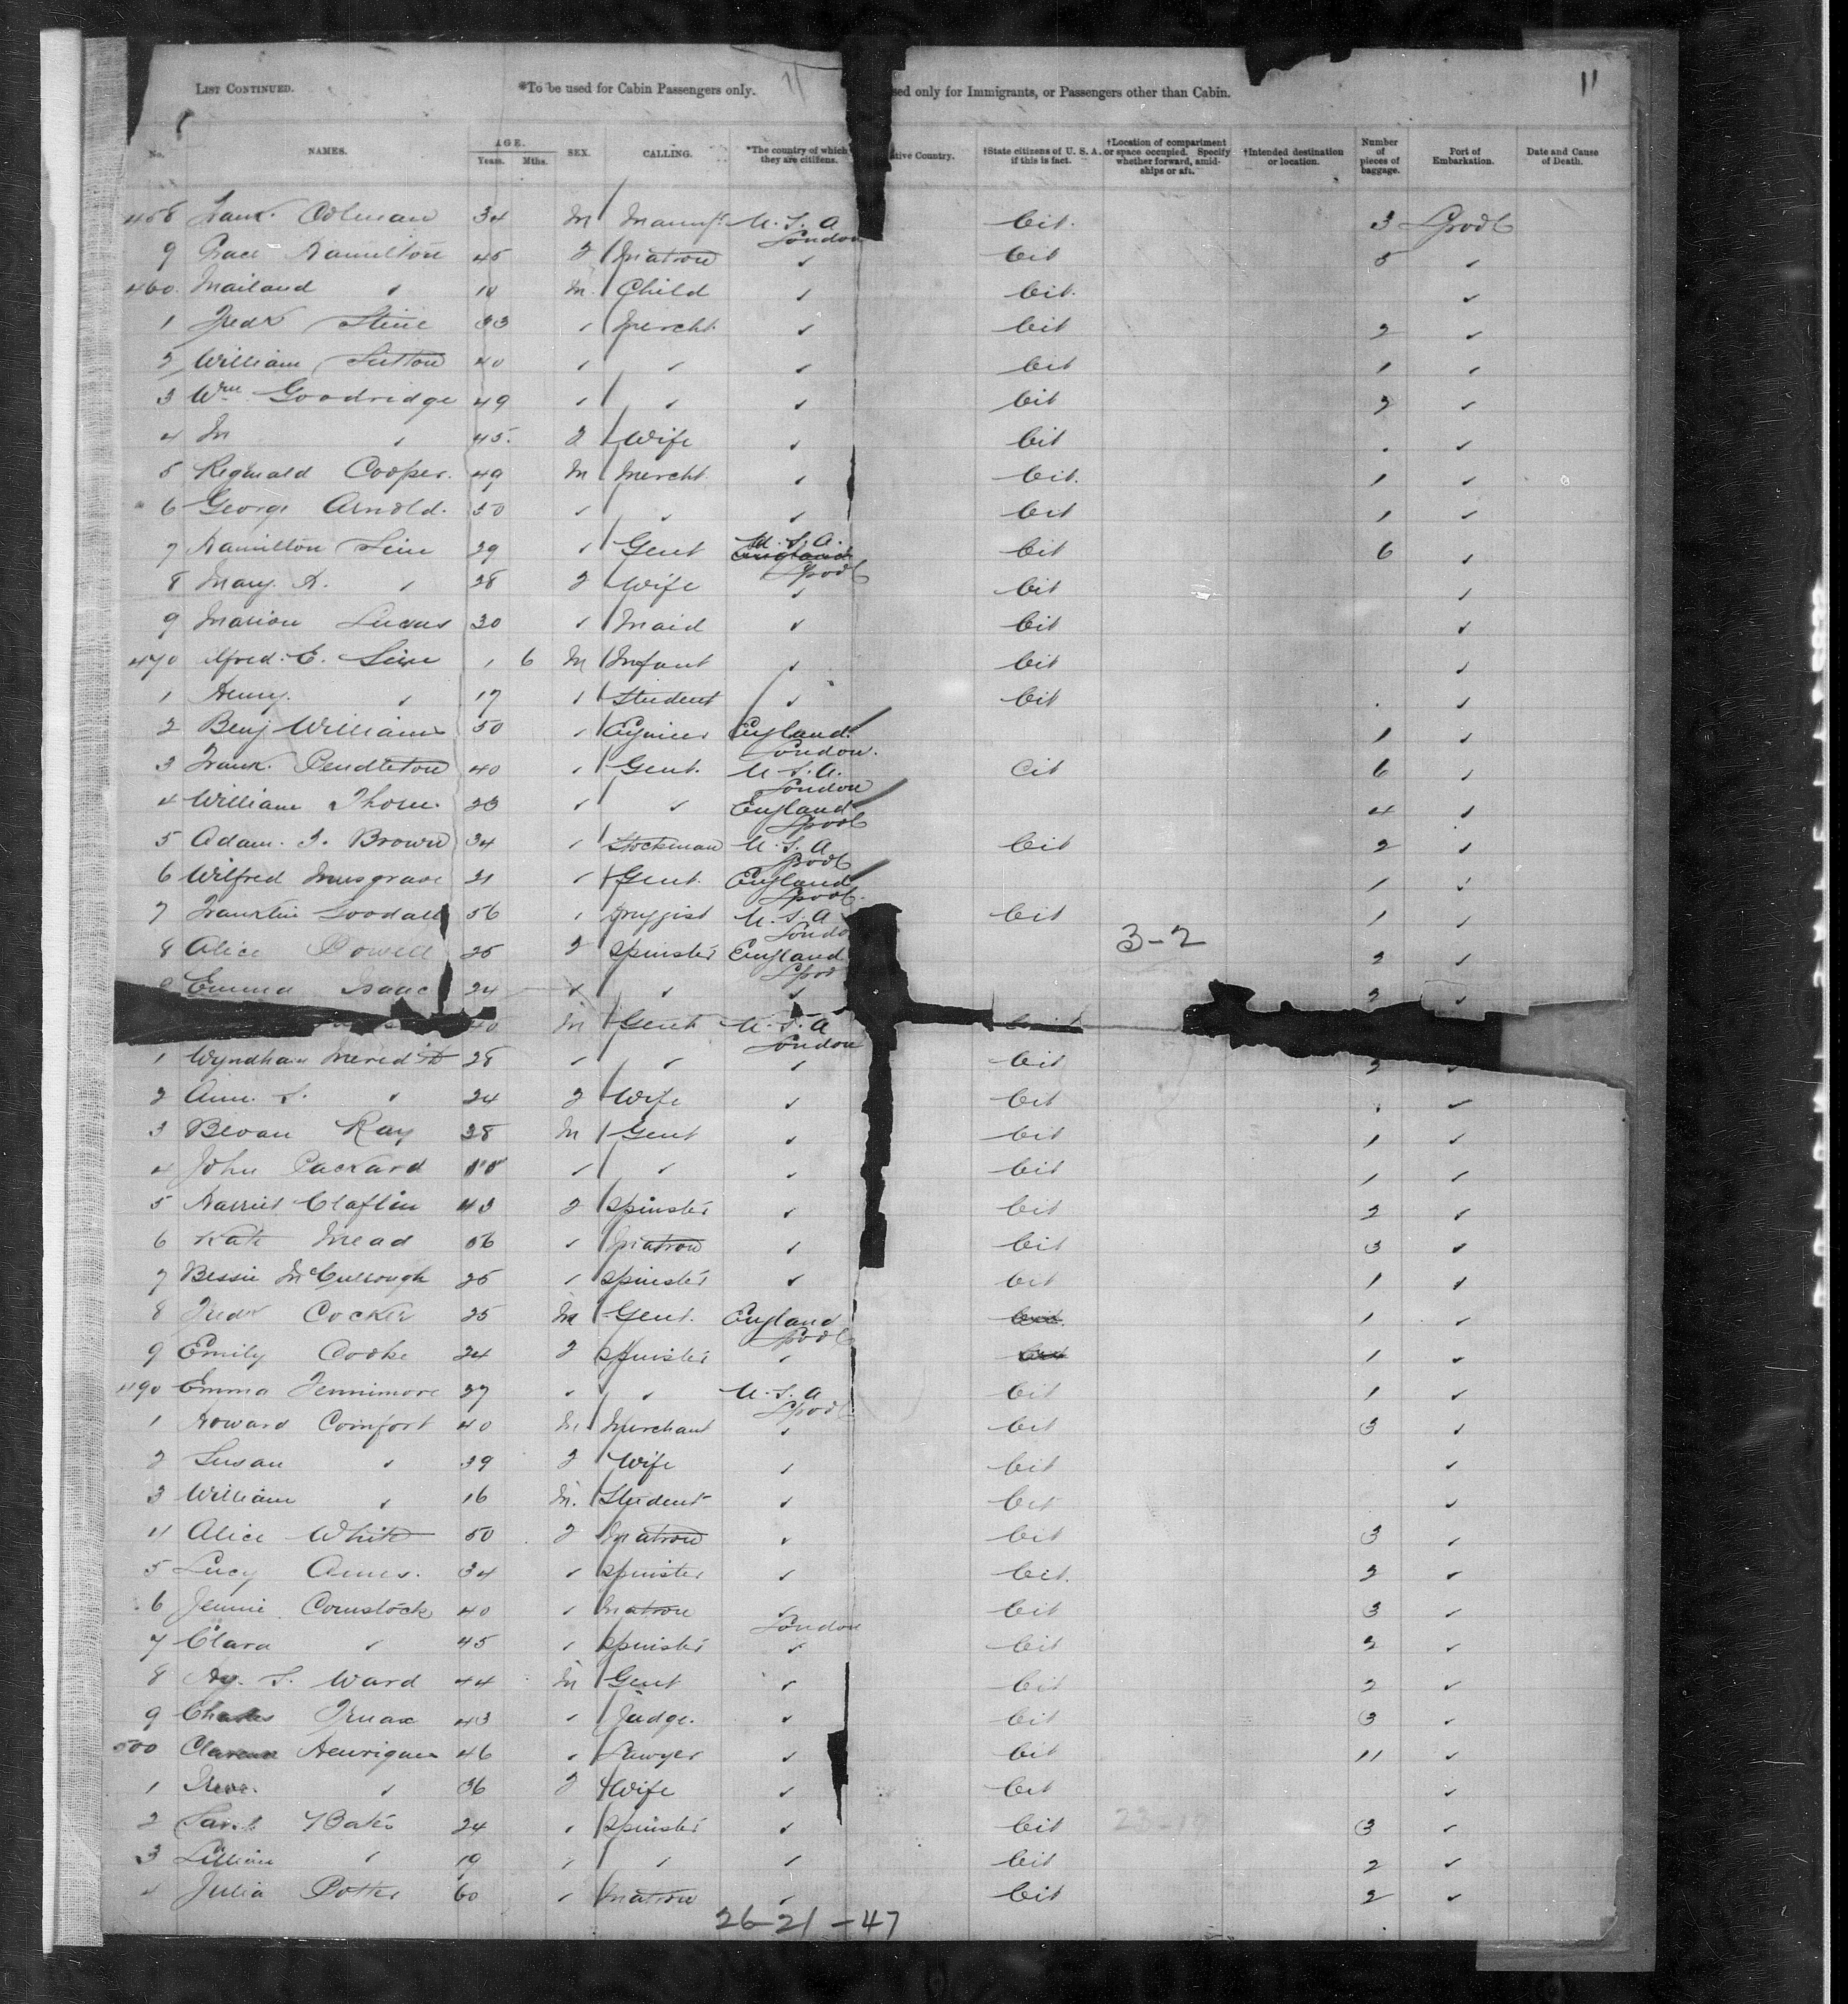 11
LIST CONTINUED. *To be used for Cabin Passengers only. 11 sed only for Immigrants, or Passengers other than Cabin.
No. NAMES. AGE. Years. Mths. SEX. CALLING. *The country of which they are citizens. ative Country. †State citizens of U. S. A. if this is fact. †Location of compartment or space occupied. Specify whether forward, amidships or aft. †Intended destination or location. Number of pieces of baggage. Port of Embarkation. Date and Cause of Death.
458 Frank Colman 34 M U. S. A London Cit. 3 Lpool
9 Grace Hamilton 45 F Matron ✓ Cit 5 ✓
460. Mailand ✓ 10 M. Child ✓ Cit. ✓
1 Fredk 33 ✓ Mercht. ✓ Cit 2 ✓
2 William Sutton 40 ✓ ✓ ✓ Cit 1 ✓
3 Wm Goodridge 49 ✓ ✓ ✓ Cit 2 ✓
4 M ✓ 45. F Wife ✓ Cit . ✓
5 Reginald Cooper. 49 M Mercht. ✓ Cit. 1 ✓
6 George Arnold. 50 ✓ ✓ ✓ Cit 1 ✓
7 Hamilton 29 ✓ Gent U. S. A. England Lpool Cit 6 ✓
8 Mary A. ✓ 28 F Wife ✓ Cit ✓
9 Marion Lucas 30 ✓ Maid ✓ Cit ✓
470 Alfred. E. ✓ 6 M Infant ✓ Cit ✓
1 Henry. ✓ 17 ✓ Student ✓ Cit . ✓
2 Benj Williams 50 ✓ Engineer England. London. 1 ✓
3 Frank. Pendleton 40 ✓ Gent. U. S. A. London Cit 6 ✓
4 William Thom. 23 ✓ ✓ England Lpool 4 ✓
5 Adam. S. Brown 34 ✓ Stockman U. S. A Lpool Cit 2 ✓
6 Wilfred Musgrave 21 ✓ Gent. England Lpool. 1 ✓
7 Franklin Goodall 56 ✓ Druggist U. S. A Londo Cit 1 ✓
8 Alice Powell 25 F Spinster England Lpoo 3-2 2 ✓
9 Emma Isaac 24 ✓ ✓ ✓ 2 ✓
40 M Gent U. S. A London
1 Wyndham Meredith 28 ✓ ✓ ✓ Cit 2 ✓
2 Ann. S. ✓ 24 F Wife ✓ Cit . ✓
3 Bevan Ray 38 M Gent ✓ Cit 1 ✓
4 John Packard ✓ ✓ ✓ Cit 1 ✓
5 Harriet Claflin 43 F Spinster ✓ Cit 2 ✓
6 Kate Mead 56 ✓ Matron ✓ Cit 3 ✓
7 Bessie McCullough 25 ✓ Spinster ✓ Cit 1 ✓
8 Fredk Cocker 25 M Gent. England Lpool 1 ✓
9 Emily Cooke 24 F Spinster ✓ 1 ✓
490 Emma Fennimore 27 ✓ ✓ U. S. A Lpool Cit 1 ✓
1 Howard Comfort 40 M Merchant ✓ Cit 3 ✓
2 Susan ✓ 39 F Wife ✓ Cit ✓
3 William ✓ 16 M. Student ✓ Cit ✓
4 Alice White 50 F Matron ✓ Cit 3 ✓
5 Lucy Ames. 34 ✓ Spinster ✓ Cit. 2 ✓
6 Jennie Comstock 40 ✓ Matron ✓ London Cit 3 ✓
7 Clara ✓ 45 ✓ Spinster ✓ Cit 2 ✓
8 Hy. S. Ward 44 M Gent ✓ Cit 2 ✓
9 Charles Truax 43 ✓ Judge. ✓ Cit 3 ✓
500 Clarence Henriques 46 ✓ Lawyer ✓ Cit 11 ✓
1 ✓ 36 F Wife ✓ Cit ✓
2 Bates 24 ✓ Spinster ✓ Cit 3 ✓
3 Lillian ✓ 19 ✓ ✓ ✓ Cit 2 ✓
4 Julia Potter 60 ✓ Matron ✓ Cit 2 ✓
26-21-47